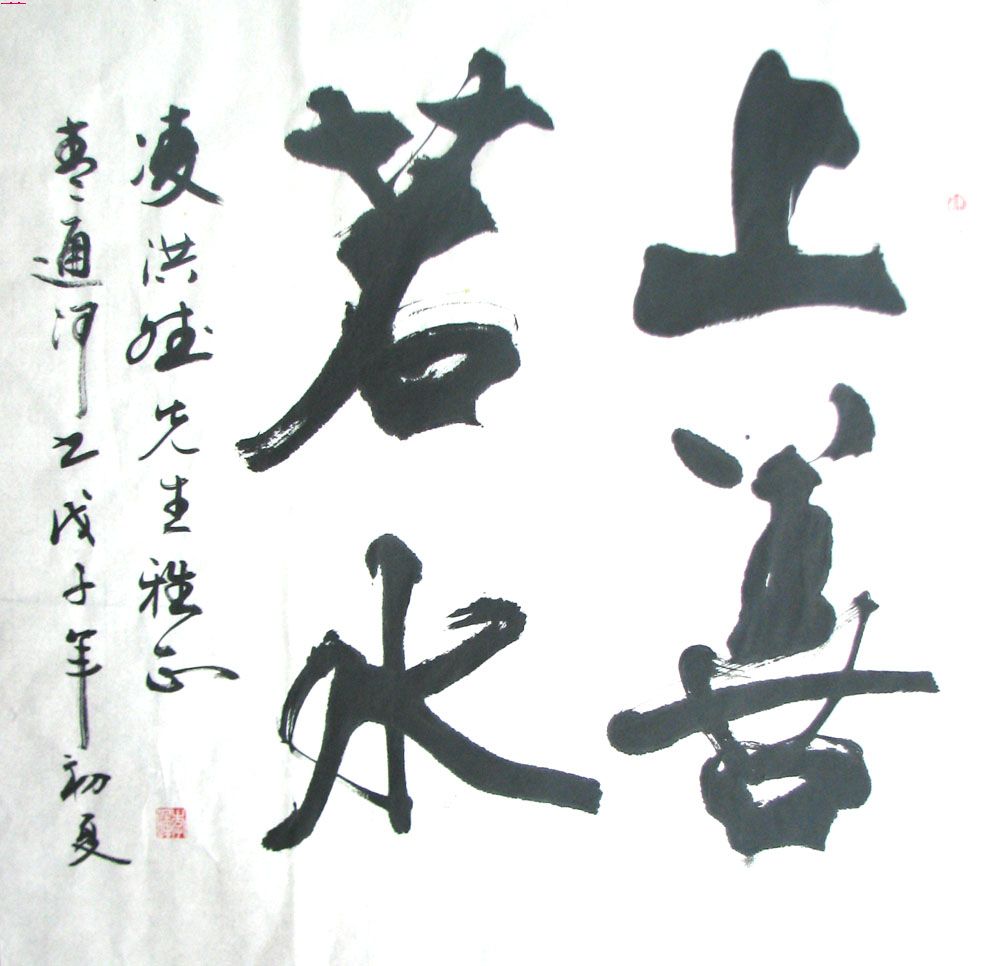 上善
若水
凌洪先生雅正
通河书戊子年初夏